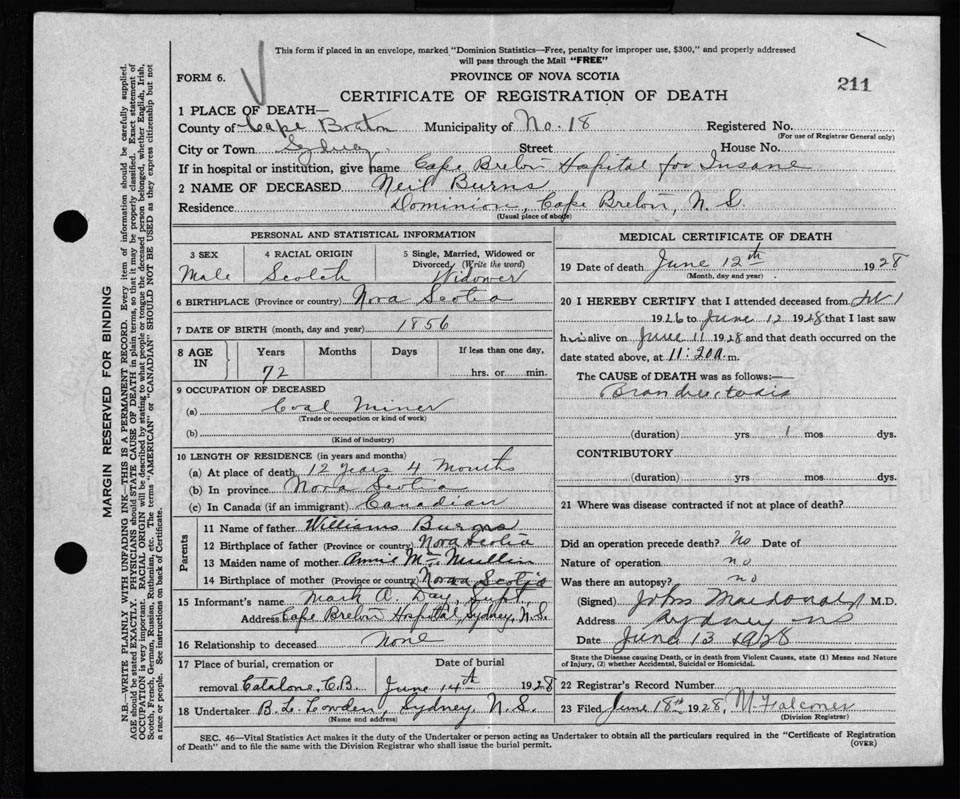 This form if placed in an envelope, marked "Dominion Statistics—Free, penalty for improper use, $300," and properly addressed
will pass through the Mail "FREE"
FORM 6.
PROVINCE OF NOVA SCOTIA
211
CERTIFICATE OF REGISTRATION OF DEATH
1 PLACE OF DEATH—
County of Cape Breton Municipality of No. 18 Registered No.
(For use of Registrar General only)
City or Town Sydney Street House No.
If in hospital or institution, give name Cape Breton Hospital for Insane
2 NAME OF DECEASED Neil Burns
Residence Dominion, Cape Breton, N. S.
(Usual place of abode)
PERSONAL AND STATISTICAL INFORMATION
3 SEX 4 RACIAL ORIGIN 5 Single, Married, Widowed or
Divorced (Write the word)
Male Scotch Widower
6 BIRTHPLACE (Province or country) Nova Scotia
7 DATE OF BIRTH (month, day and year) 1856
8 AGE IN Years Months Days If less than one day,
72 hrs. or min.
9 OCCUPATION OF DECEASED
(a) Coal Miner
(Trade or occupation or kind of work)
(b)
(Kind of industry)
10 LENGTH OF RESIDENCE (in years and months)
(a) At place of death 12 Years 4 Months
(b) In province Nova Scotia
(c) In Canada (if an immigrant) Canadian
Parents
11 Name of father Williams Burns
12 Birthplace of father (Province or country) Nova Scotia
13 Maiden name of mother Annie Mc Mullin
14 Birthplace of mother (Province or country) Nova Scotia
15 Informant's name Mark A. Day, Supt.
Address Cape Breton Hospital, Sydney, N.S.
16 Relationship to deceased None
17 Place of burial, cremation or Date of burial
removal Catalone, C.B. June 14th 1928
18 Undertaker B. L. Lowden, Sydney, N. S.
(Name and address)
MEDICAL CERTIFICATE OF DEATH
19 Date of death June 12th 1928
(Month, day and year)
20 I HEREBY CERTIFY that I attended deceased from
1926 to June 12 1928 that I last saw
him alive on June 11 1928 and that death occurred on the
date stated above, at 11:20 a.m.
The CAUSE of DEATH was as follows:—
(duration) yrs 1 mos dys.
CONTRIBUTORY
(duration) yrs mos dys.
21 Where was disease contracted if not at place of death?
Did an operation precede death? No Date of
Nature of operation no
Was there an autopsy? no
(Signed) John Macdonald M.D.
Address Sydney NS
Date June 13 1928
State the Disease causing Death, or in death from Violent Causes, state (1) Means and Nature
of Injury, (2) whether Accidental, Suicidal or Homicidal.
22 Registrar's Record Number
23 Filed June 18th 1928, M Falconer
(Division Registrar)
SEC. 46—Vital Statistics Act makes it the duty of the Undertaker or person acting as Undertaker to obtain all the particulars required in the "Certificate of Registration
of Death" and to file the same with the Division Registrar who shall issue the burial permit.
(OVER)
MARGIN RESERVED FOR BINDING
N.B.—WRITE PLAINLY WITH UNFADING INK—THIS IS A PERMANENT RECORD. Every item of information should be carefully supplied.
AGE should be stated EXACTLY. PHYSICIANS should STATE CAUSE OF DEATH in plain terms, so that it may be properly classified. Exact statement of
OCCUPATION is very important. RACIAL ORIGIN will be described by stating to what people or tongue the deceased person belonged, whether English, Irish,
Scotch, French, German, Russian, Ruthenian, etc. The terms "AMERICAN" or "CANADIAN" SHOULD NOT BE USED as they express citizenship but not
a race or people. See instructions on back of Certificate.